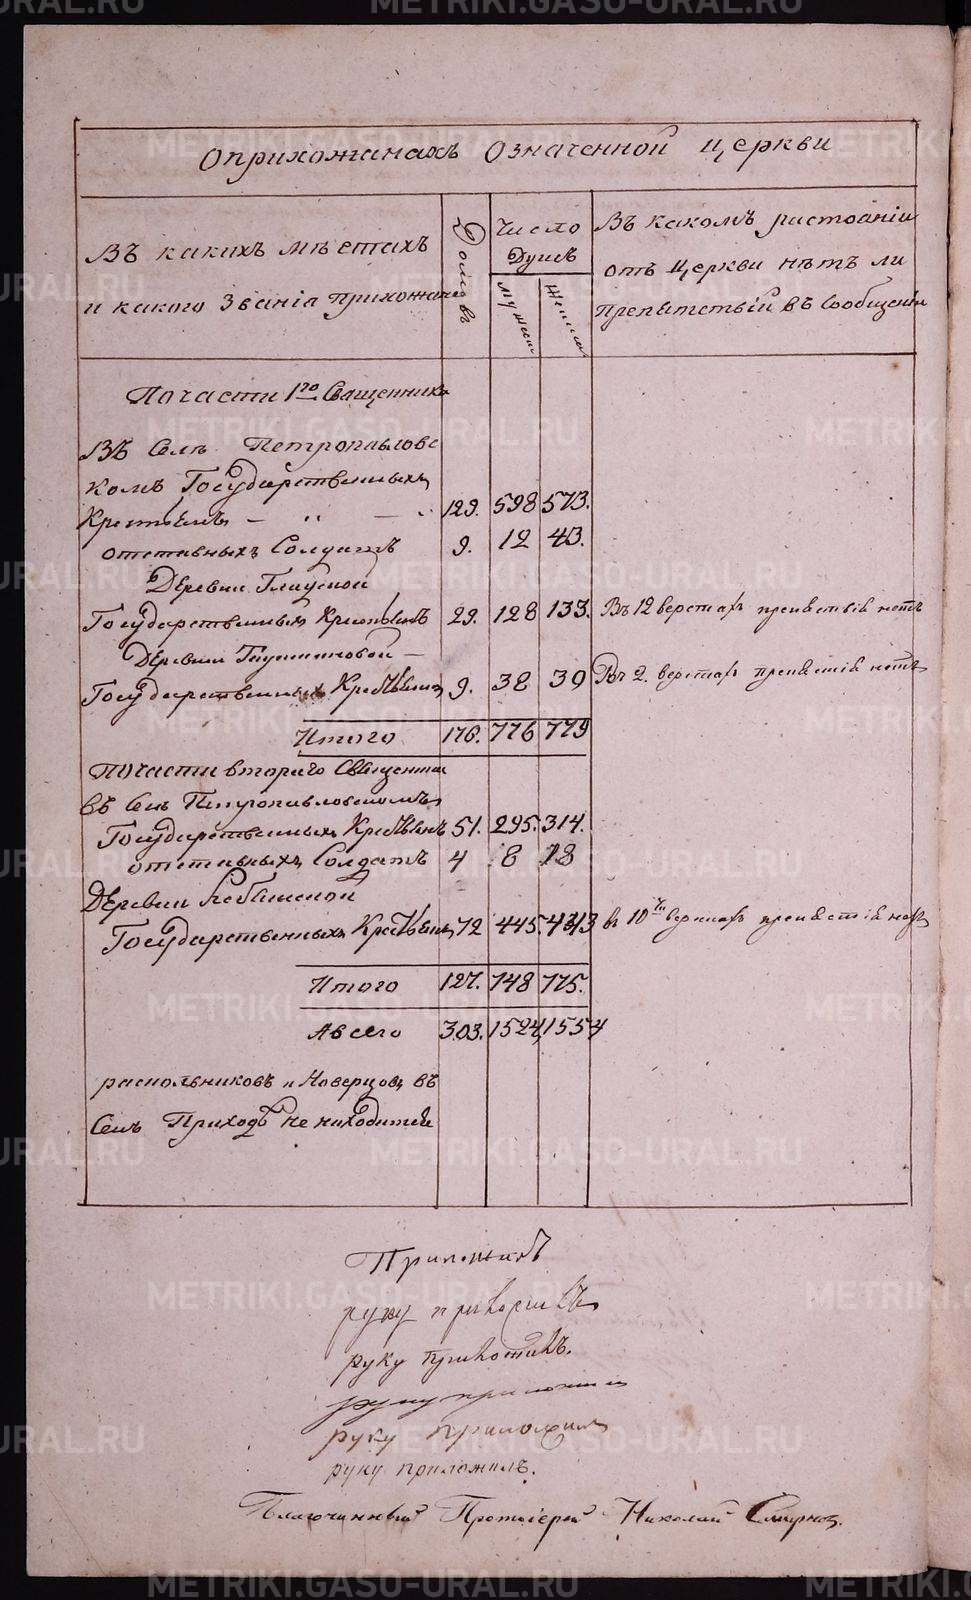 О прихожанахъ Означенной церкви
Въ какихъ мѣстахъ
и какого Званія прихожане
Домовъ
Число
Душъ
мужеск
женск
Въ какомъ растоаніи
отъ Церкви нѣтъ ли
Препятствій въ сообщеніи
По части 1го Священника
Въ Селѣ Петропавловс
комъ Государственныхъ
Крестьянъ — „ — „ 129. 598 573.
отставныхъ Солдатъ 9. 12 43.
Деревни
Государственныхъ Крестьянъ 29. 128 133. Въ 12 верстахъ препятствій нетъ
Деревни
Государственныхъ Крестьянъ 9. 38 39 Въ 2. верстахъ препятствій нетъ
Итого 176. 776 779
По части втораго Священника
въ Селѣ Петропавловскомъ
Государственныхъ Крестьянъ 51. 295. 314.
отставныхъ Солдатъ 4 8 18
Деревни
Государственныхъ Крестьянъ 72 445. в 10ти верстахъ препятствій нетъ
Итого 127. 748 775.
А всего 303. 1524 1554
раскольниковъ и Иоверцовъ въ
Семъ Приходѣ не находится
Приложилъ
руку приложилъ
руку приложилъ.
руку приложилъ
руку приложилъ
руку приложилъ.
Благочинный Протоіерей Николай Смирновъ.
METRIKI.GASO-URAL.RU